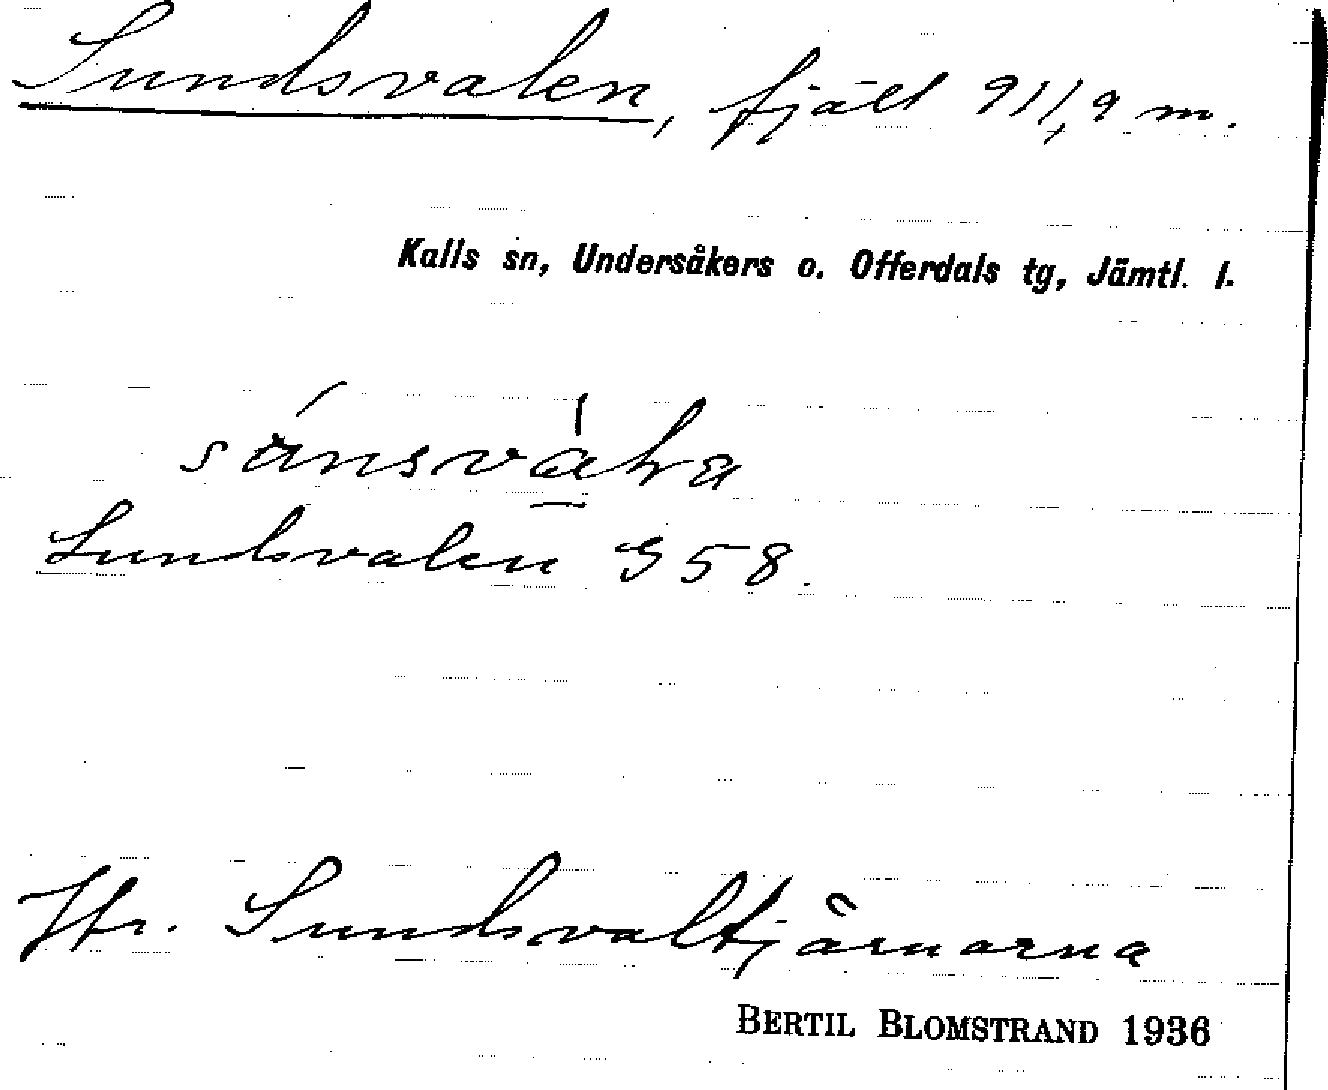 Sundsvalen, fjäll 911,9 m.
Kalls sn, Undersåkers o. Offerdals tg, Jämtl. l.
Sundsvalen G 58.
Jfr. Sundsvaltjärnarna
BERTIL BLOMSTRAND 1936